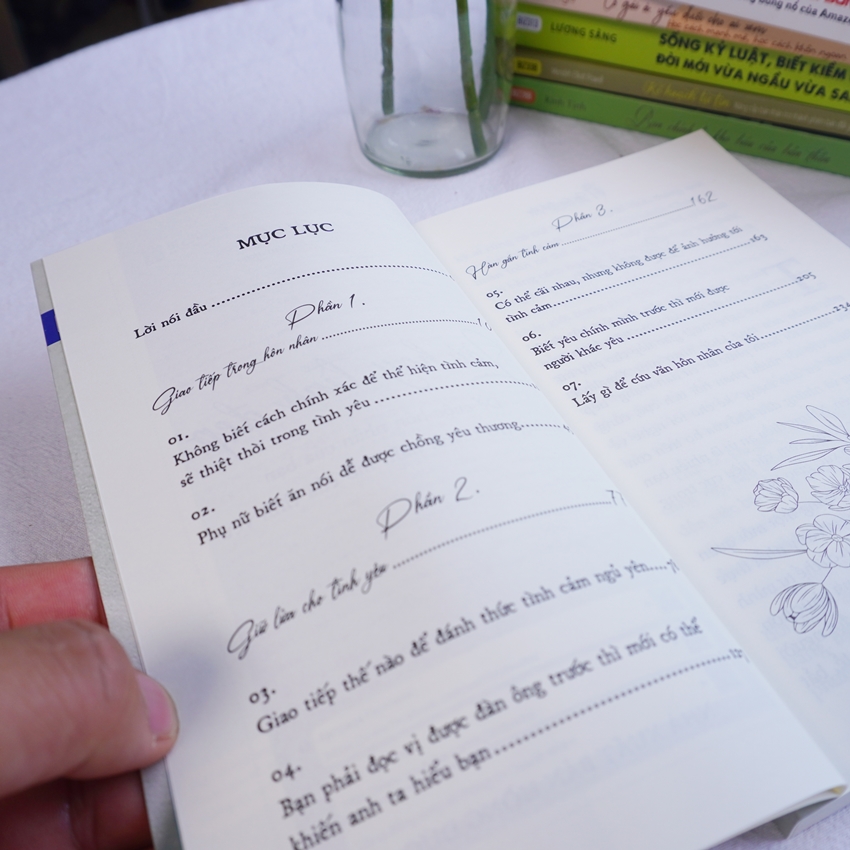 MỤC LỤC
Lời nói đầu
Phần 1.
Giao tiếp trong hôn nhân
01.
Không biết cách chính xác để thể hiện tình cảm,
sẽ thiệt thòi trong tình yêu
02.
Phụ nữ biết ăn nói dễ được chồng yêu thương
Phần 2.
Giữ lửa cho tình yêu 77
03.
Giao tiếp thế nào để đánh thức tình cảm ngủ yên
04.
Bạn phải đọc vị được đàn ông trước thì mới có thể
khiến anh ta hiểu bạn
Phần 3.
Hàn gắn tình cảm 162
05.
Có thể cãi nhau, nhưng không được để ảnh hưởng tới
tình cảm 163
06.
Biết yêu chính mình trước thì mới được
người khác yêu 205
07.
Lấy gì để cứu vãn hôn nhân của tôi
LƯƠNG SẢNG
SỐNG KỶ LUẬT, BIẾT KIỀM
ĐỜI MỚI VỪA NGẦU VỪA
của Amazon